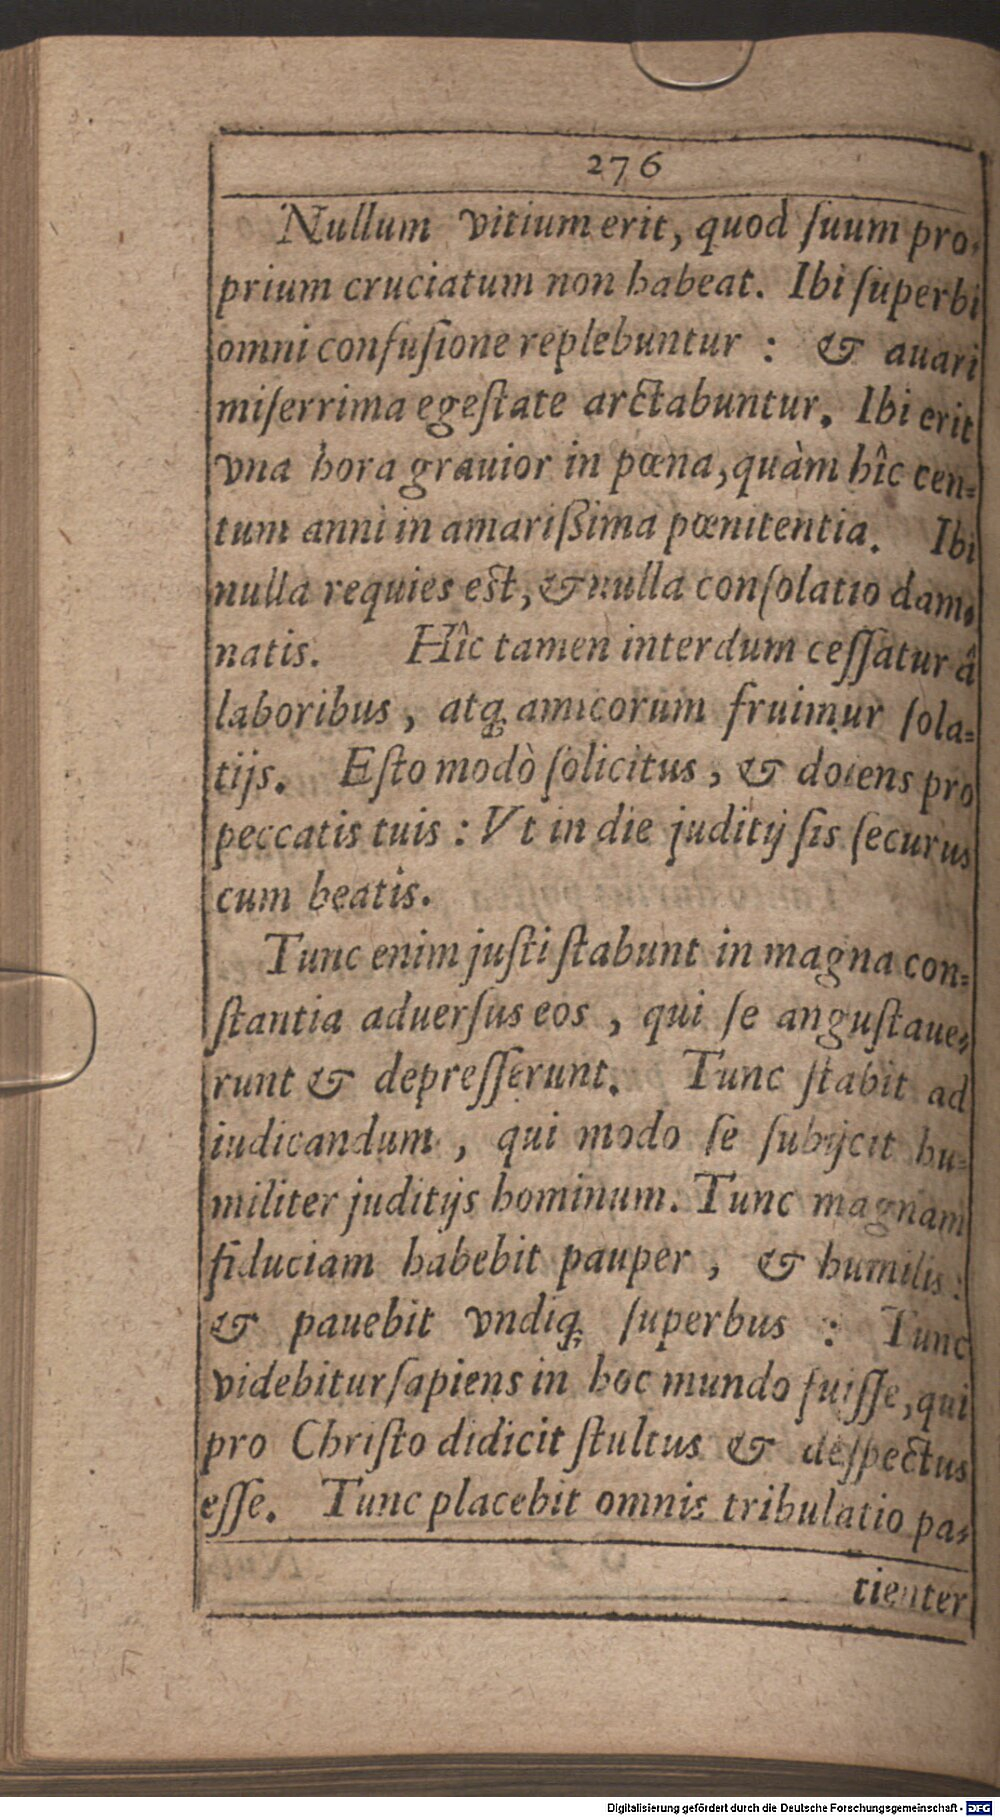 276
Nullum vitium erit, quod ſuum pro-
prium cruciatum non habeat. Ibi ſuperbi
omni confuſione replebuntur : & auari
miſerrima egeſtate arctabuntur. Ibi erit
vna hora grauior in pœna, quàm hîc cen-
tum anni in amariſsima pœnitentia. Ibi
nulla requies est, & nulla conſolatio dam-
natis. Hîc tamen interdum ceſſatur â
laboribus, atq; amicorum fruimur ſola-
tijs. Eſto modò ſolicitus, & dolens pro
peccatis tuis : Vt in die juditij ſis ſecurus
cum beatis.
Tunc enim juſti ſtabunt in magna con-
ſtantia aduerſus eos, qui ſe anguſtaue-
runt & depreſſerunt. Tunc ſtabit ad
iudicandum, qui modo ſe ſubijcit hu-
militer juditijs hominum. Tunc magnam
fiduciam habebit pauper, & humilis :
& pauebit vndiq; ſuperbus : Tunc
videbitur ſapiens in hoc mundo fuiſſe, qui
pro Chriſto didicit ſtultus & deſpectus
eſſe. Tunc placebit omnis tribulatio pa-
tienter
Digitalisierung gefördert durch die Deutsche Forschungsgemeinschaft - DFG